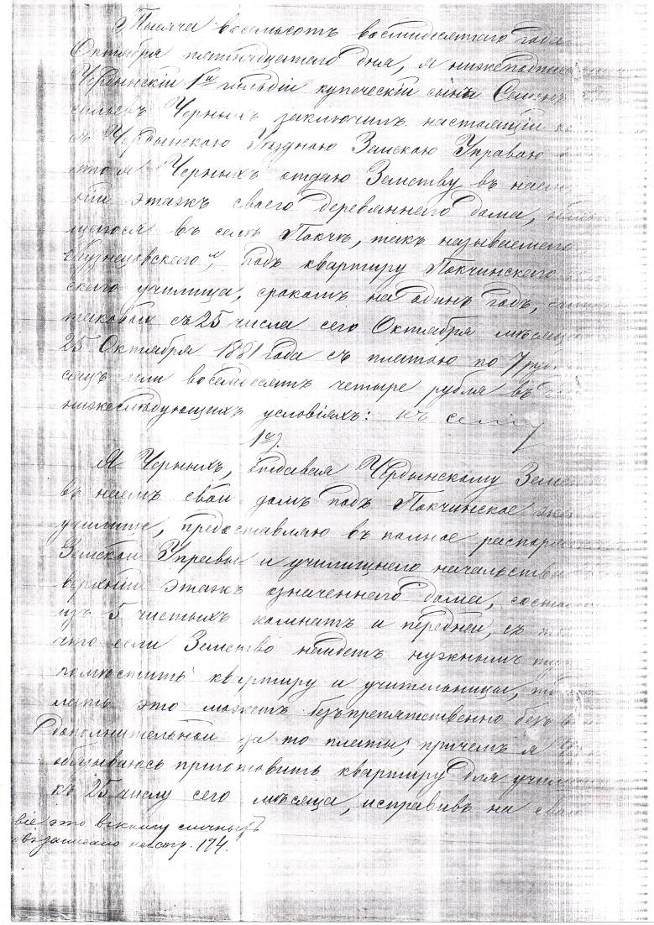 Тысяча восемьсотъ восьмидесятаго года
Октября пятнадцатаго дня, я нижеподпис
Чердынскій 1й гильдіи купеческій сынъ Семенъ
Черныхъ заключилъ настоящій
Чердынскою Уѣздною Земскою Управою
Черныхъ отдаю Земству въ наем
ній этажъ своего деревяннаго дома,
щагося въ селѣ Покчѣ, такъ называемаго
Кузнецовскаго, подъ квартиру Покчинскаго
скаго училища, срокомъ на одинъ годъ,
таковой съ 25 числа сего Октября мѣсяца
25 Октября 1881 года съ платою по 7 руб
сяцъ или восемьдесятъ четыре рубля въ
нижеслѣдующихъ условіяхъ: къ сему
1е).
Я Черныхъ, отдавая Чердынскому Земс
въ наемъ свой домъ подъ Покчинское
училище, предоставляю въ полное распоря
Земской Управы и училищнаго начальства
верхній этажъ означеннаго дома, состоя
изъ 5 чистыхъ комнатъ и передней, съ
что если Земство найдетъ нужнымъ
помѣстить квартиру и учительницы,
лать это можетъ безпрепятственно безъ
дополнительной за то платы, причемъ я
обязываюсь приготовить квартиру для учили
къ 25 числу сего мѣсяца, исправивъ на
все это
записано на стр. 174.